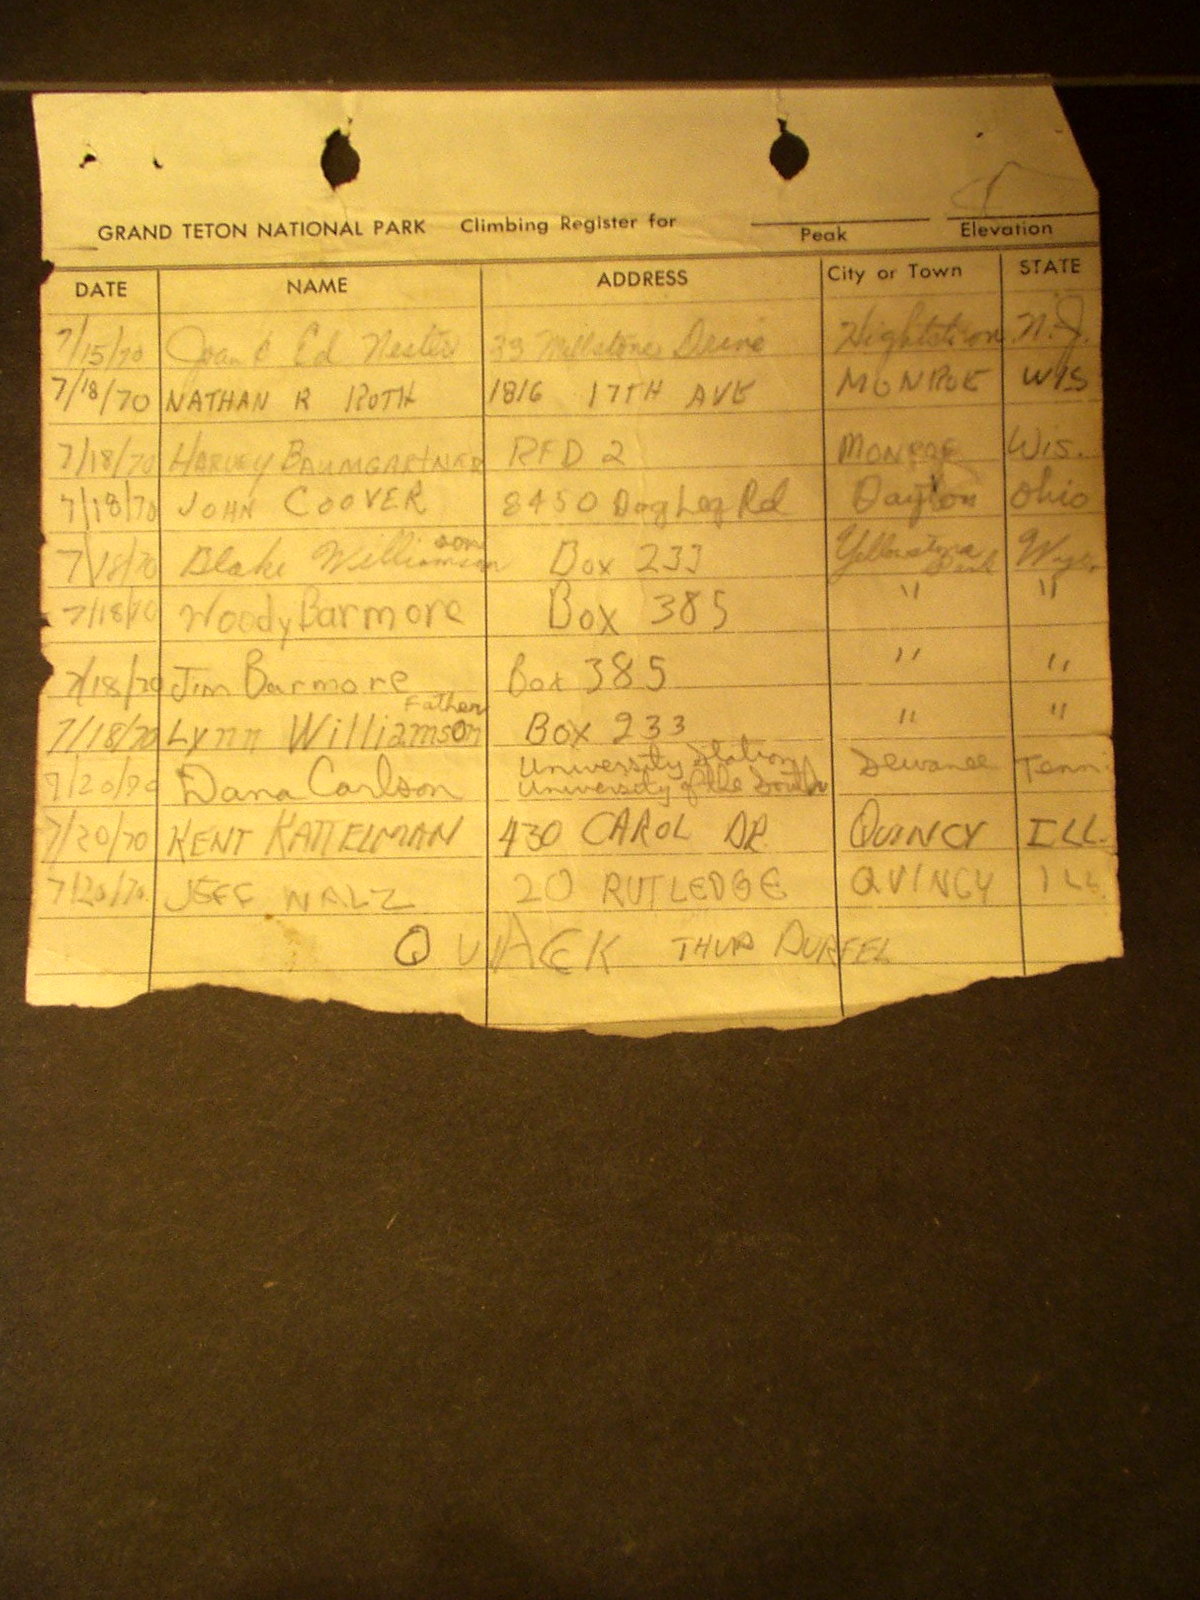 GRAND TETON NATIONAL PARK Climbing Register for
Peak Elevation
DATE NAME ADDRESS City or Town STATE
7/15/70 Joan & Ed Nester 33 Millstone Drive Hightstown N.J.
7/18/70 NATHAN R ROTH 1816 17TH AVE MONROE WIS
7/18/70 HARVEY BAUMGARTNER RFD 2 MONROE Wis.
7/18/70 JOHN COOVER 8450 Dog Leg Rd Dayton Ohio
7/18/70 Blake Williamson son Box 233 Yellowstone Park Wyo.
7/18/70 Woody Barmore Box 385 " "
7/18/70 Jim Barmore Box 385 " "
7/18/70 Lynn Williamson Father Box 233 " "
7/20/70 Dana Carlson University Station University of the South Sewanee Tenn.
7/20/70 KENT KATTELMAN 430 CAROL DR. QUINCY ILL.
7/20/70 JEFF WALZ 20 RUTLEDGE QUINCY ILL
QUACK